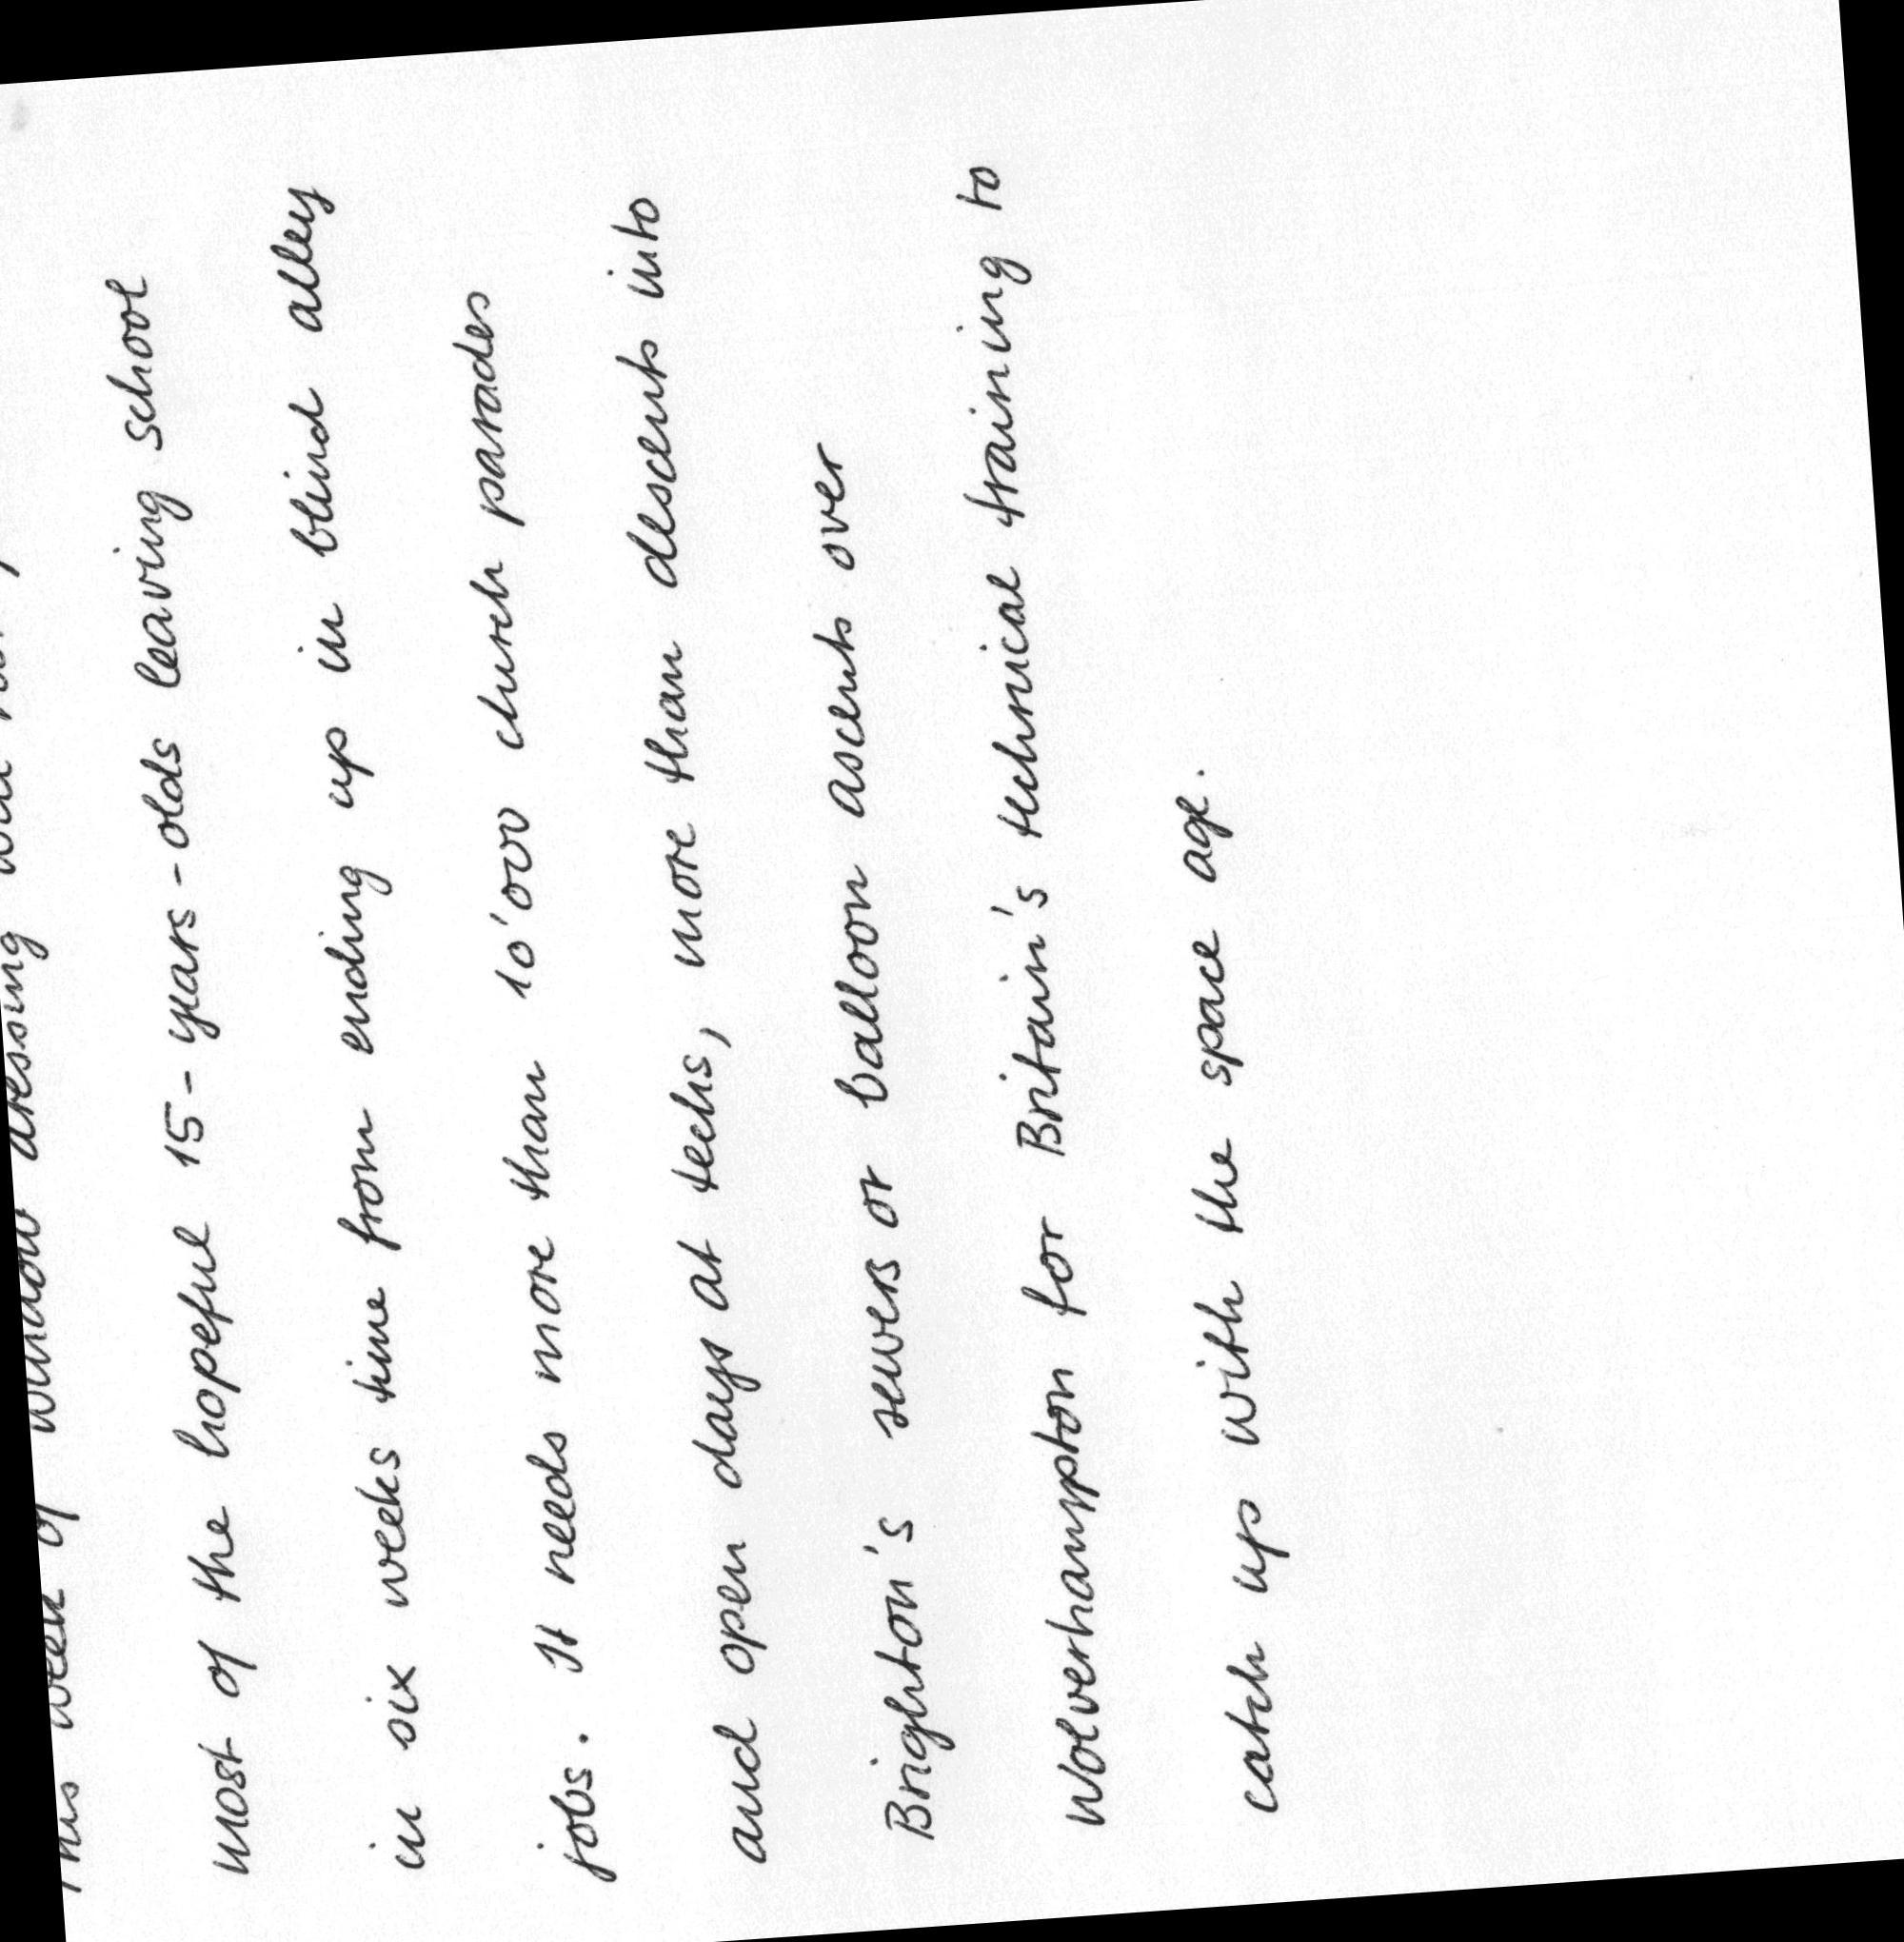 This week of window dressing will not
most of the hopeful 15-years-olds leaving school
in six weeks time from ending up in blind alley
jobs. It needs more than 10'000 church parades
and open days at techs, more than descents into
Brighton's sewers or balloon ascents over
Wolverhampton for Britain's technical training to
catch up with the space age.